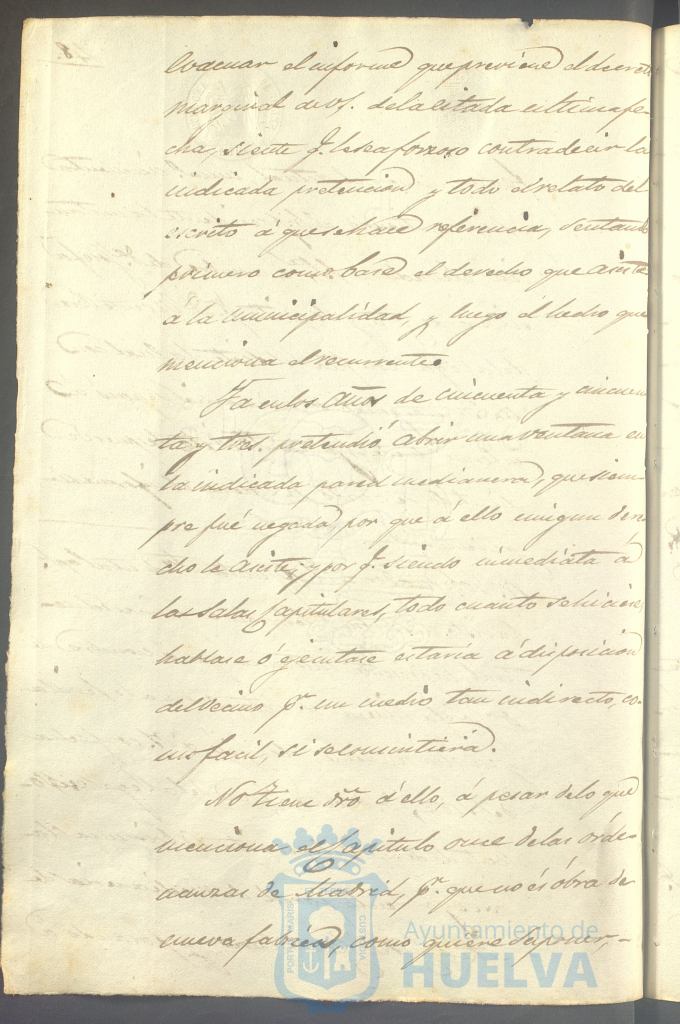 Evacuar el informe que previene el decreto
marginal de VS. de la citada ultima fe-
cha, siente q.e le sea forzoso contradecir la
indicada pretencion y todo el relato del
escrito á que se hace referencia, sentando
primero como base el derecho que asiste
á la municipalidad, y luego el hecho que
menciona el recurrente.
Ya en los años de cincuenta y cincuen
ta y tres. pretendió abrir una ventana en
la indicada pared medianera, que siem-
pre fué negada, por que á ello ningun dere
cho le asiste, y por q.e siendo inmediata á
las Salas Capitulares, todo cuanto se hiciese,
hablase ó ejecutase estaria á disposicion
del vecino p.r un medio tan indirecto, co-
mo facil, si se consintiera.
No tiene dro á ello, á pesar de lo que
menciona el Capitulo once de las orde-
nanzas de Madrid, p.r que no és óbra de
nueva fabrica, como quiere suponer,-
PORTUS MARIS
CUSTODIA
Ayuntamiento de
HUELVA